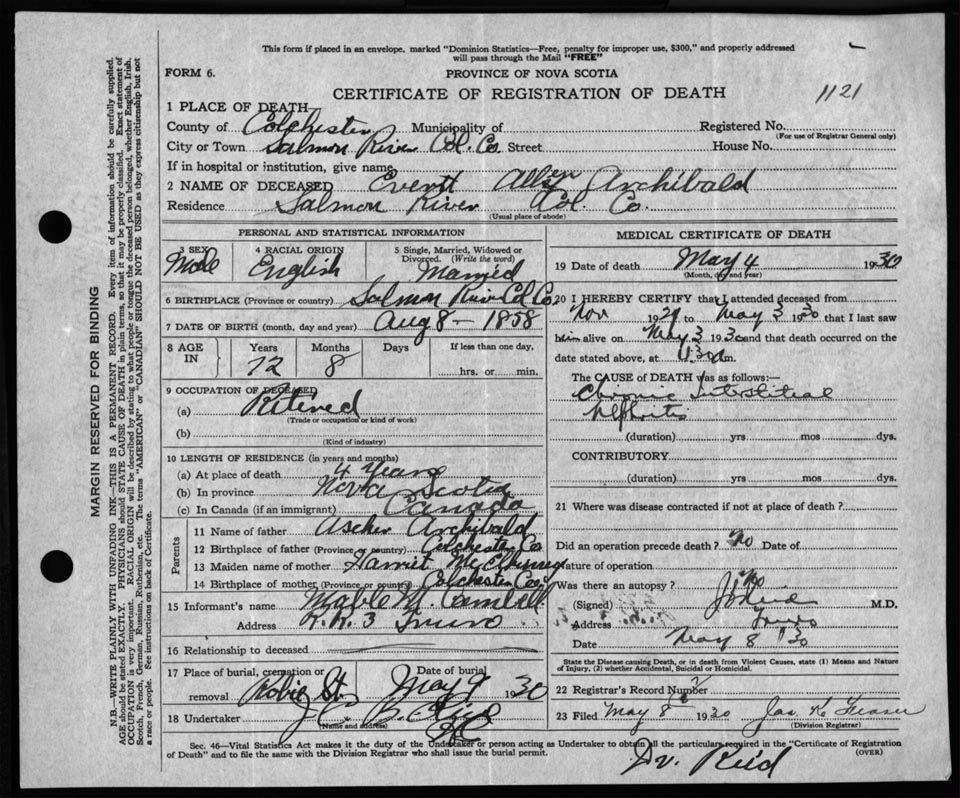 This form if placed in an envelope, marked "Dominion Statistics—Free, penalty for improper use, $300," and properly addressed
will pass through the Mail "FREE"
FORM 6.
PROVINCE OF NOVA SCOTIA
CERTIFICATE OF REGISTRATION OF DEATH
1121
MARGIN RESERVED FOR BINDING
N.B.—WRITE PLAINLY WITH UNFADING INK—THIS IS A PERMANENT RECORD. Every item of information should be carefully supplied.
AGE should be stated EXACTLY. PHYSICIANS should STATE CAUSE OF DEATH in plain terms, so that it may be properly classified. Exact statement of
OCCUPATION is very important. RACIAL ORIGIN will be described by stating to what people or tongue the deceased person belonged, whether English, Irish,
Scotch, French, German, Russian, Ruthenian, etc. The terms "AMERICAN" or "CANADIAN" SHOULD NOT BE USED as they express citizenship but not
a race or people. See instructions on back of Certificate.
1 PLACE OF DEATH
County of Colchester Municipality of Registered No.
(For use of Registrar General only)
City or Town Salmon River Col. Co. Street House No.
If in hospital or institution, give name
2 NAME OF DECEASED Everett Allen Archibald
Residence Salmon River Col. Co.
(Usual place of abode)
PERSONAL AND STATISTICAL INFORMATION
3 SEX
Male
4 RACIAL ORIGIN
English
5 Single, Married, Widowed or
Divorced. (Write the word)
Married
6 BIRTHPLACE (Province or country) Salmon River Col Co.
7 DATE OF BIRTH (month, day and year) Aug 8 - 1858
8 AGE
IN
Years
72
Months
8
Days
If less than one day.
hrs. or min.
9 OCCUPATION OF DECEASED
(a) Retired
(Trade or occupation or kind of work)
(b)
(Kind of industry)
10 LENGTH OF RESIDENCE (in years and months)
(a) At place of death 4 Years
(b) In province Nova Scotia
(c) In Canada (if an immigrant) Canada
Parents
11 Name of father Ascher Archibald
12 Birthplace of father (Province or country) Colchester Co
13 Maiden name of mother Harriet McElhinney
14 Birthplace of mother (Province or country) Colchester Co
15 Informant's name Mable M.
Address R.R. 3 Truro
16 Relationship to deceased
17 Place of burial, cremation or
removal Robie St
Date of burial
May 9 1930
18 Undertaker J.C.
(Name and address)
MEDICAL CERTIFICATE OF DEATH
19 Date of death May 4 1930
(Month, day and year)
20 I HEREBY CERTIFY that I attended deceased from
Nov 1929 to May 3 1930 that I last saw
him alive on May 3 1930 and that death occurred on the
date stated above, at m.
The CAUSE OF DEATH was as follows:—
Chronic Interstitial
Nephritis
(duration) yrs mos dys.
CONTRIBUTORY
(duration) yrs mos dys.
21 Where was disease contracted if not at place of death?
Did an operation precede death? No Date of
Nature of operation
Was there an autopsy? No
(Signed) M.D.
Address Truro
Date May 8 30
State the Disease causing Death, or in death from Violent Causes, state (1) Means and Nature
of Injury, (2) whether Accidental, Suicidal or Homicidal.
22 Registrar's Record Number
23 Filed May 8 1930 Jas. K. Fraser
(Division Registrar)
Sec. 46—Vital Statistics Act makes it the duty of the Undertaker or person acting as Undertaker to obtain all the particulars required in the "Certificate of Registration
of Death" and to file the same with the Division Registrar who shall issue the burial permit.
(OVER)
Dr. Reid